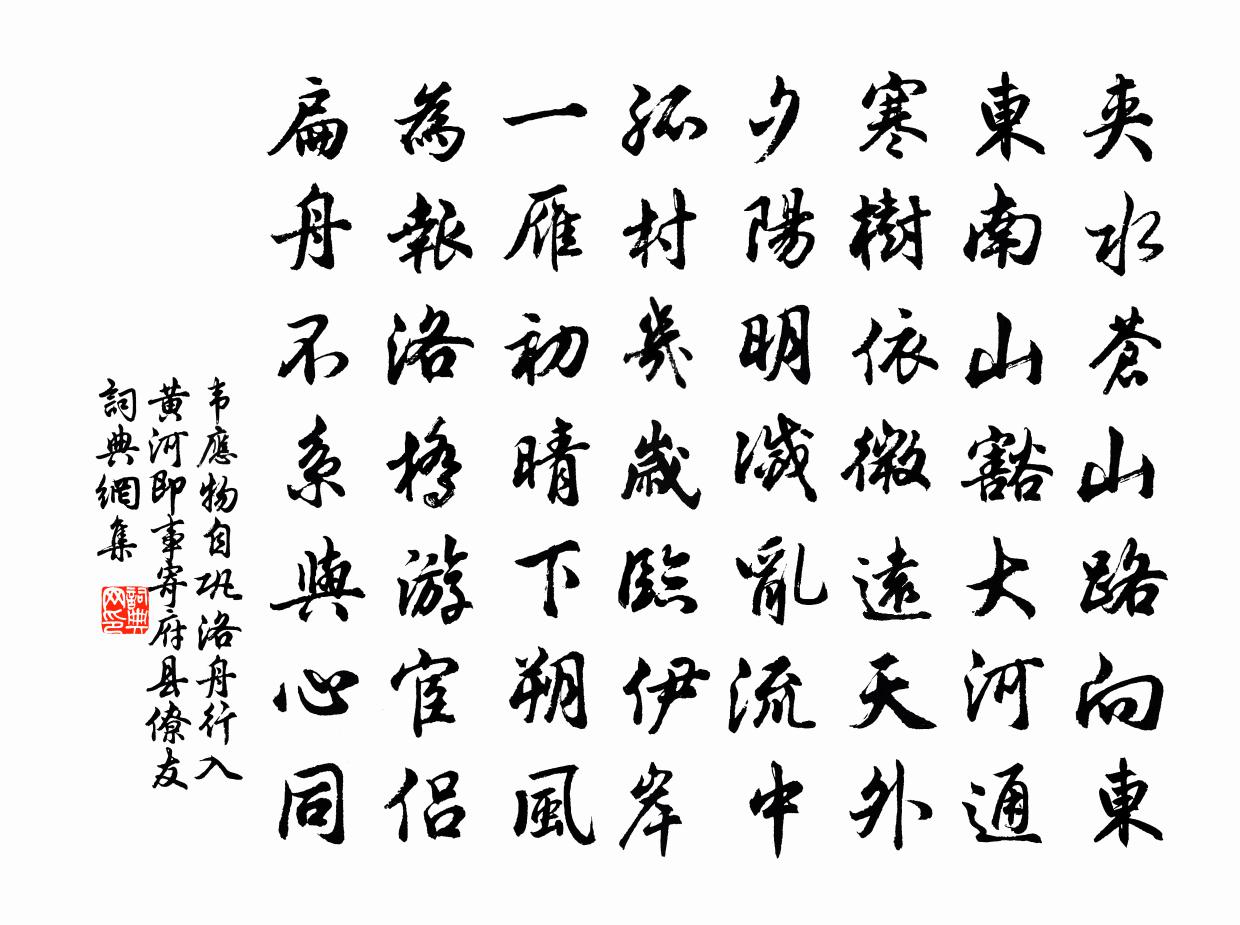 夾水蒼山路向東
東南山豁大河通
寒樹依微遠天外
夕陽明滅亂流中
孤村幾歲臨伊岸
一雁初晴下朔風
為報洛橋游宦侶
扁舟不系與心同
韦應物自巩洛舟行入
黄河即事寄府县僚友
詞典網集
詞典
网印